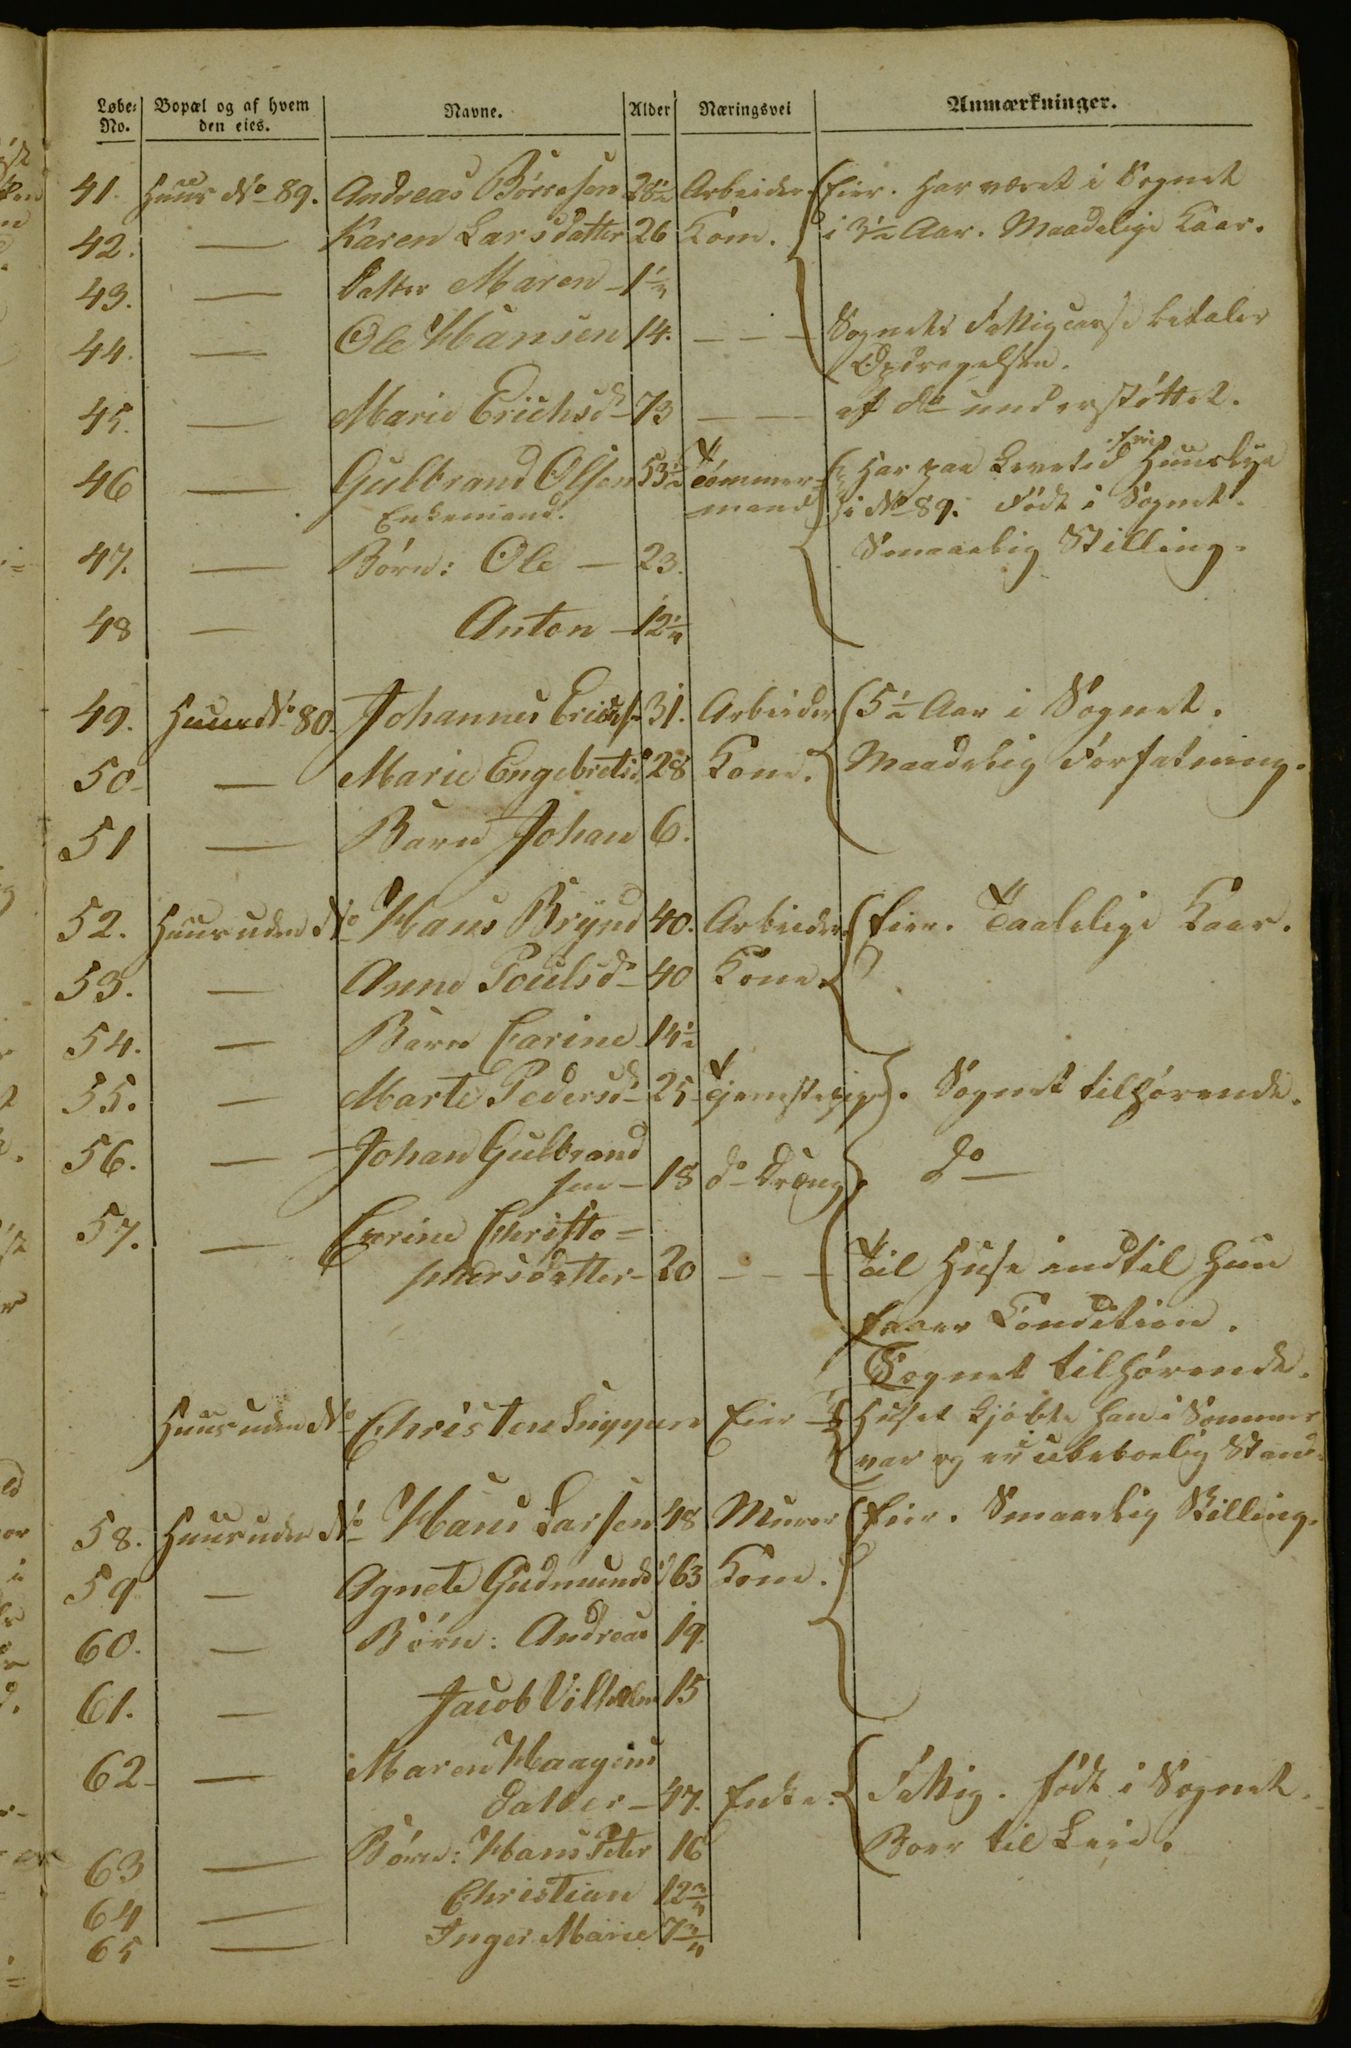 Løbe- No. Bopæl og af hvem den eies. Navne. Alder Næringsvei Anmærkninger.
41. Huus No 89. Andreas Børresen 28½ Arbeider. Eier. Har været i Sognet
42. — Karen Larsdatter 26 Kone. i 3½ Aar. Maadelige Kaar.
43. — Datter Maren – 1¼
44. — Ole Hansen 14. — — — Sognets Fattigcasse betaler
Opdragelsen.
45. — Marie Erichsd 73 — — af do understøttet.
46 — Gulbrand Olsen 53½ Tømmer- Har paa Levetid frie Huuslye
Enkemand. mand i No 89. Født i Sognet.
47. — Børn: Ole — 23. Smaalig Stilling.
48 — Anton – 12¼
49. Huus No 80. Johannes Erichs 31. Arbeider 5½ Aar i Sognet.
50 – — Marie Engebretsd 28 Kone. Maadelig Forfatning.
51 — Barn Johan 6.
52. Huus uden No Hans Brynd 40. Arbeider. Eier. Taalelige Kaar.
53. — Anne Poulsd – 40 Kone.
54. — Barn Carine 14½
55. — Marte Pedersd – 25 Tjenestepige. Sognet tilhørende.
56. — Johan Gulbrand
sen – 18 do Dreng. do —
57. — Christo=
phersdatter – 20 — — — Til Huse indtil hun
faaer Condition.
Sognet tilhørende.
Huus uden No Christen Eier – Huset kjøbte han i Sommer
var og er i ubeboelig Stand.
58. Huus uden No Hans Larsen 48 Murer Eier. Smaalig Stilling.
59 — Agnete Gudmundsd 63 Kone.
60. — Børn: Andreas 19.
61. — Jacob Vilhelm 15
62 – — Maren Haagens
datter – 47. Enke. Fattig. født i Sognet.
63 — Børn: Hans Peter 16 Boer til Leie.
64 — Christian 12¾
65 — Inger Marie 7¾